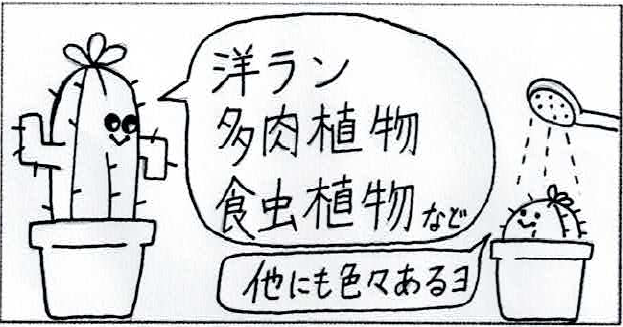 洋ラン
多肉植物
食虫植物など
他にも色々あるヨ